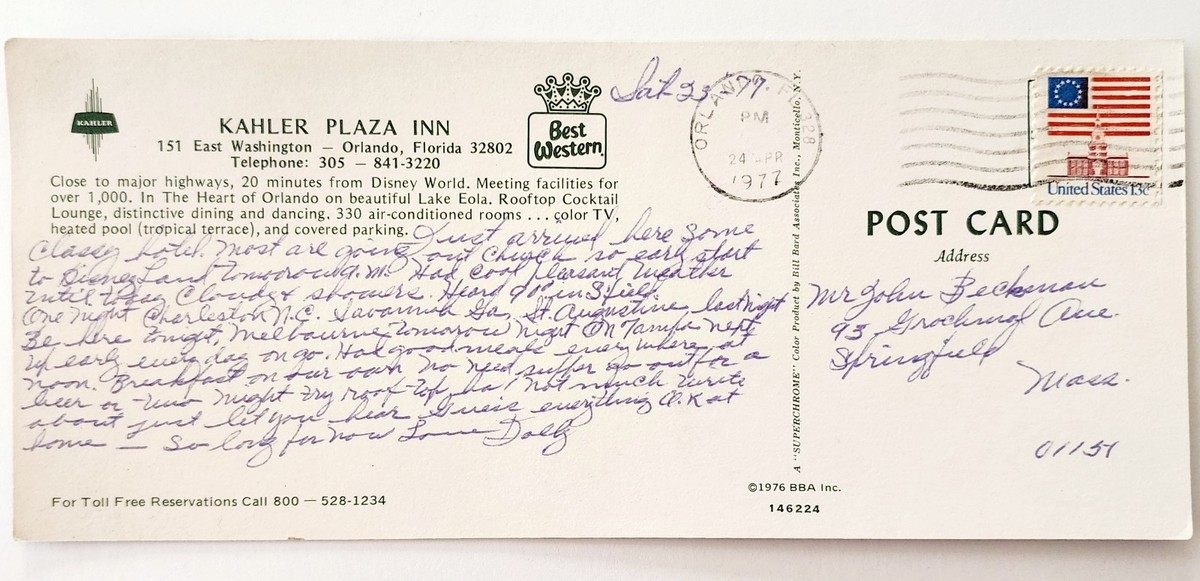 KAHLER
KAHLER PLAZA INN
151 East Washington — Orlando, Florida 32802
Telephone: 305 — 841-3220
Best
Western
Close to major highways, 20 minutes from Disney World. Meeting facilities for
over 1,000. In The Heart of Orlando on beautiful Lake Eola. Rooftop Cocktail
Lounge, distinctive dining and dancing. 330 air-conditioned rooms ... color TV,
heated pool (tropical terrace), and covered parking.
Sat 23 77.
Just arrived here some
classy hotel. Most are going out church so early start
to Disney Land tomorow a.m. Had cool pleasant weather
until today cloudy & showers. Heard 90° in Sfield
One night Charleston N.C. Savannah Ga. St. Augustine last night
Be here tonight, Melbourne tomorow night On Tampa next
up early every day on go. Had good meals everywhere at
noon. Breakfast on our own no need suffer go out for a
beer or two night try roof-top ha! Not much write
about just let you hear Guess everything O.K at
home — So long for now Love Dolly
For Toll Free Reservations Call 800 — 528-1234
A "SUPERCHROME" Color Product by Bill Bard Associates, Inc., Monticello, N.Y.
©1976 BBA Inc.
146224
ORLANDO, FL 328
PM
24 APR
1977
United States 13c
POST CARD
Address
Mr John Beckman
93 Grochmal Ave.
Springfield
Mass.
01151